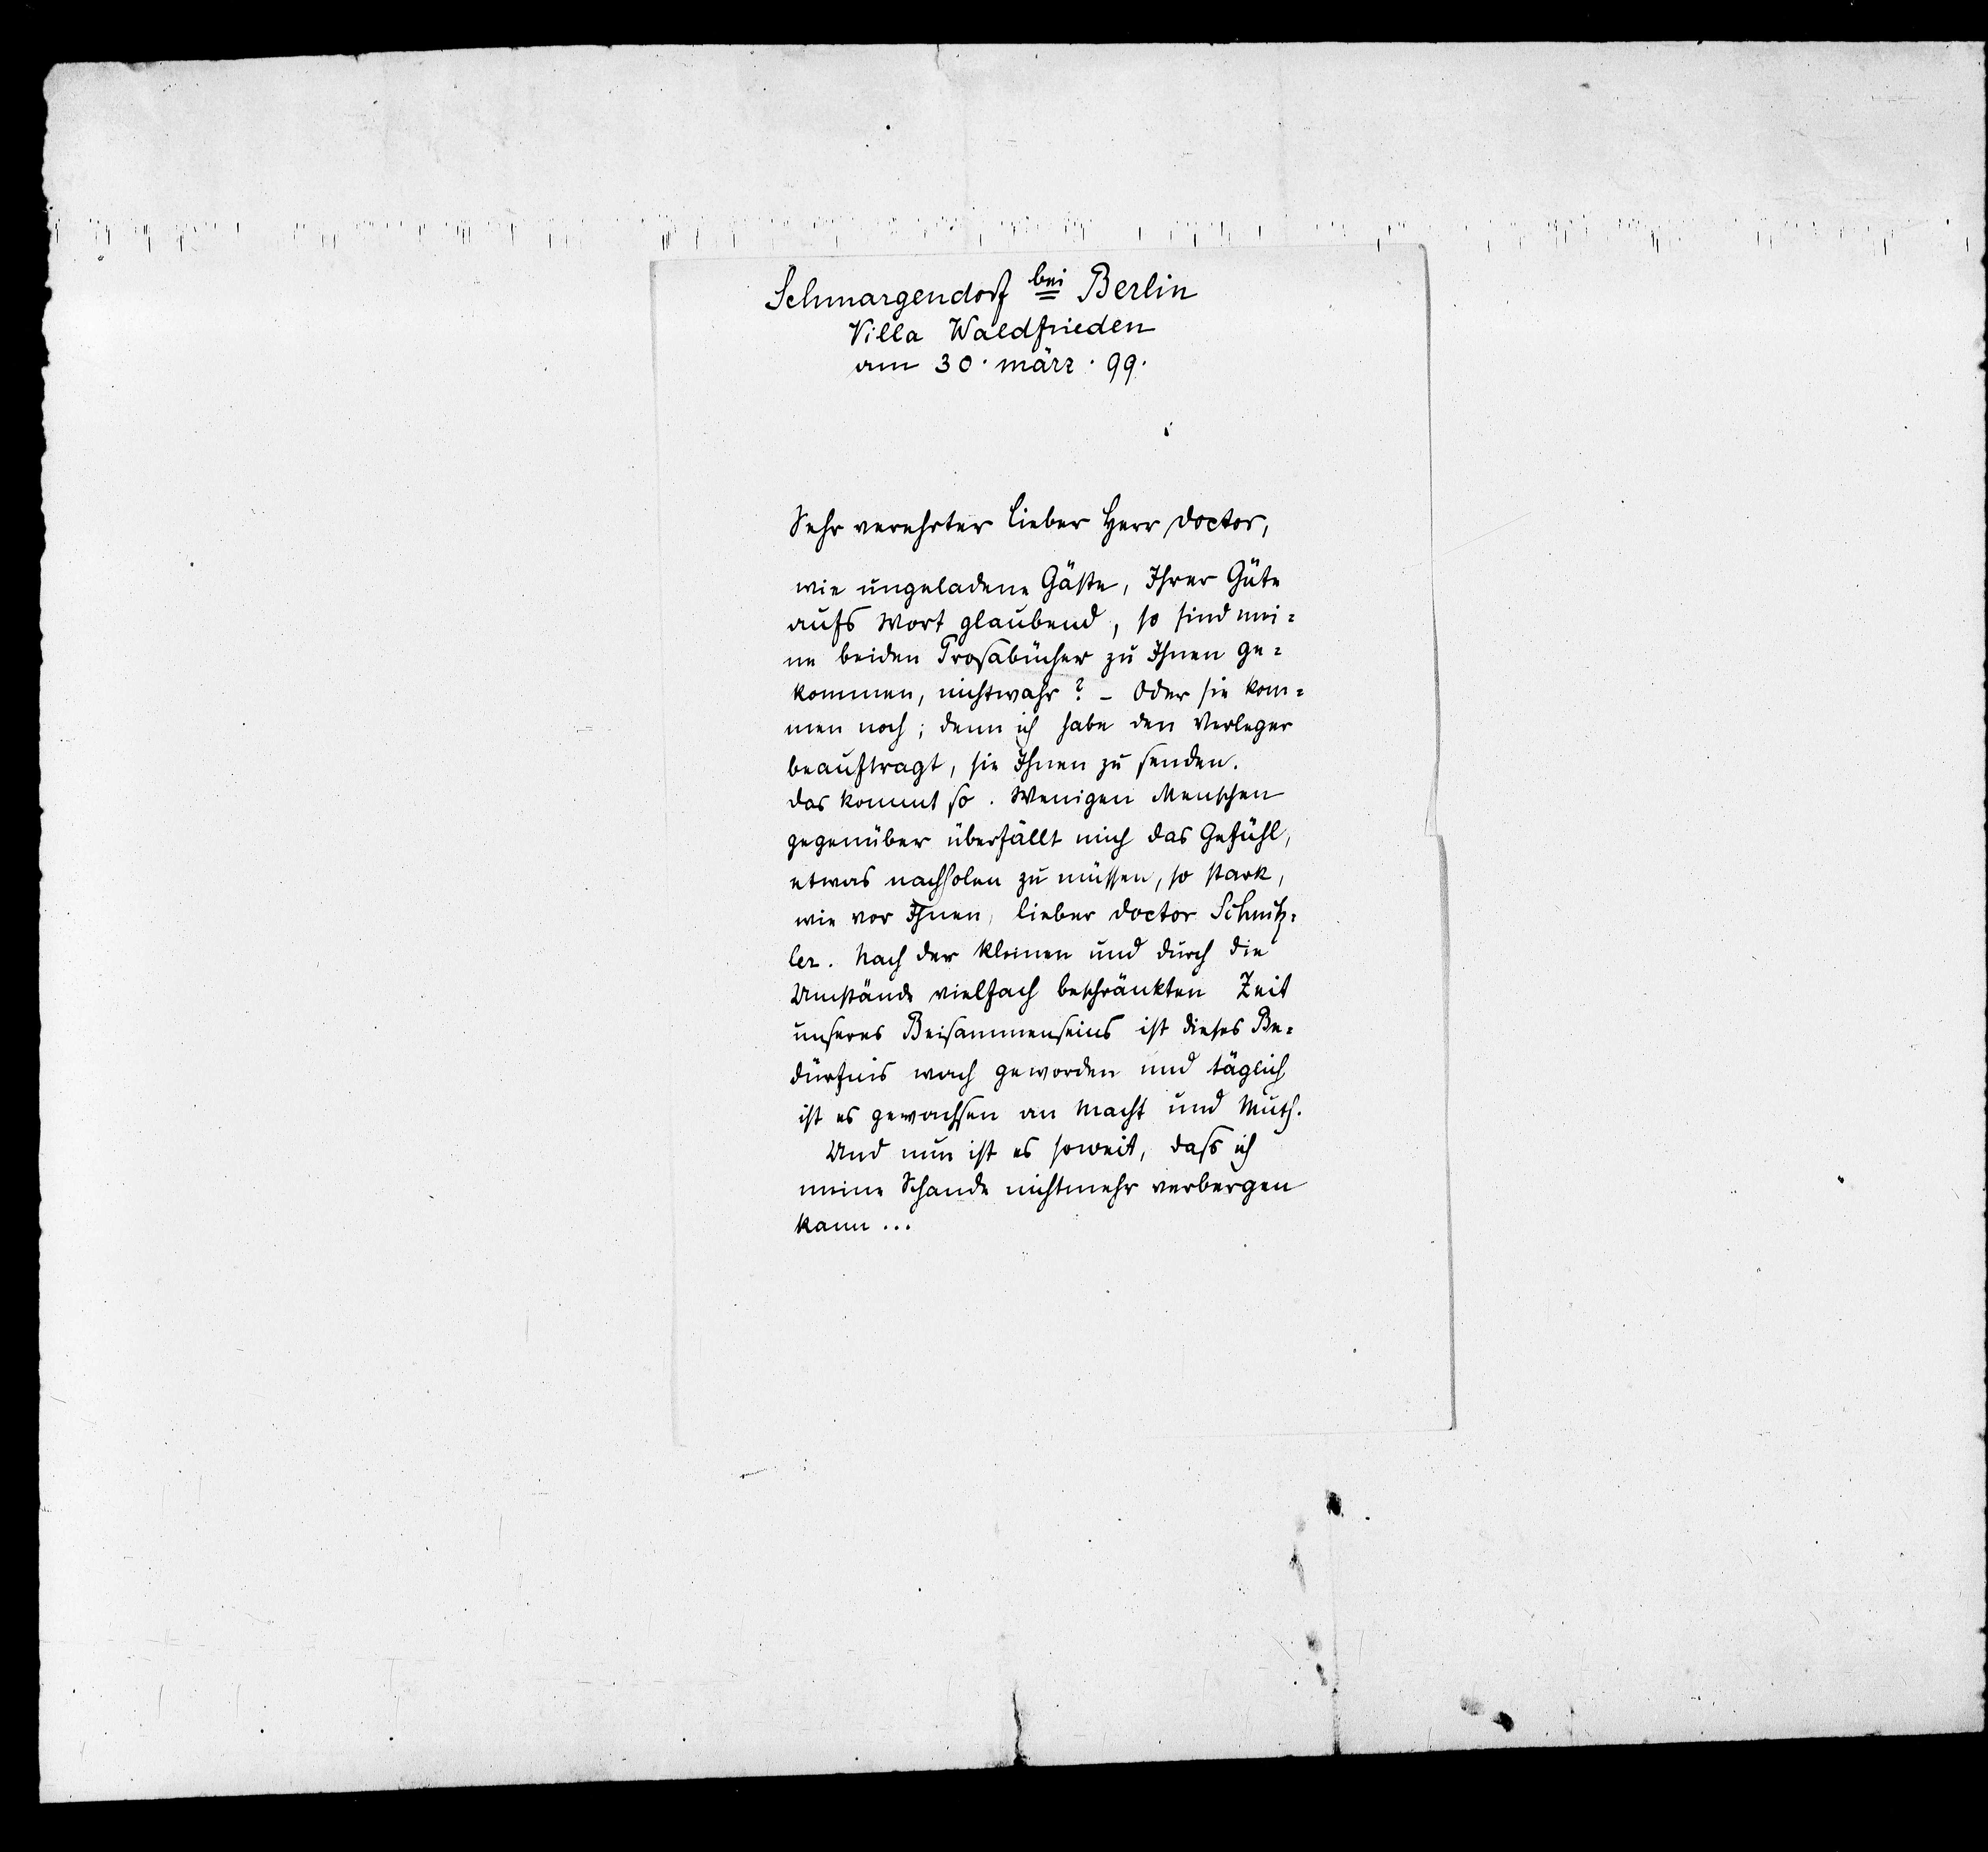 Schmargendorf bei Berlin
Villa Waldfrieden
am 30. märz. 99.
Sehr verehrter lieber Herr Doctor,
wie ungeladene Gäste, Ihrer Güte
aufs Wort glaubend, so sind mei=
ne beiden Prosabücher zu Ihnen ge=
kommen, nichtwahr? – Oder sie kom=
men noch; denn ich habe den Verleger
beauftragt, sie Ihnen zu senden.
Das kommt so. Wenigen Menschen
gegenüber überfällt mich das Gefühl,
etwas nachholen zu müssen, so stark,
wie vor Ihnen, lieber Doctor Schnitz=
ler. Nach der kleinen und durch die
Umstände vielfach beschränkten Zeit
unseres Beisammenseins ist dieses Be=
dürfnis wach geworden und täglich
ist es gewachsen an Macht und Muth.
Und nun ist es soweit, dass ich
meine Schande nichtmehr verbergen
kann...